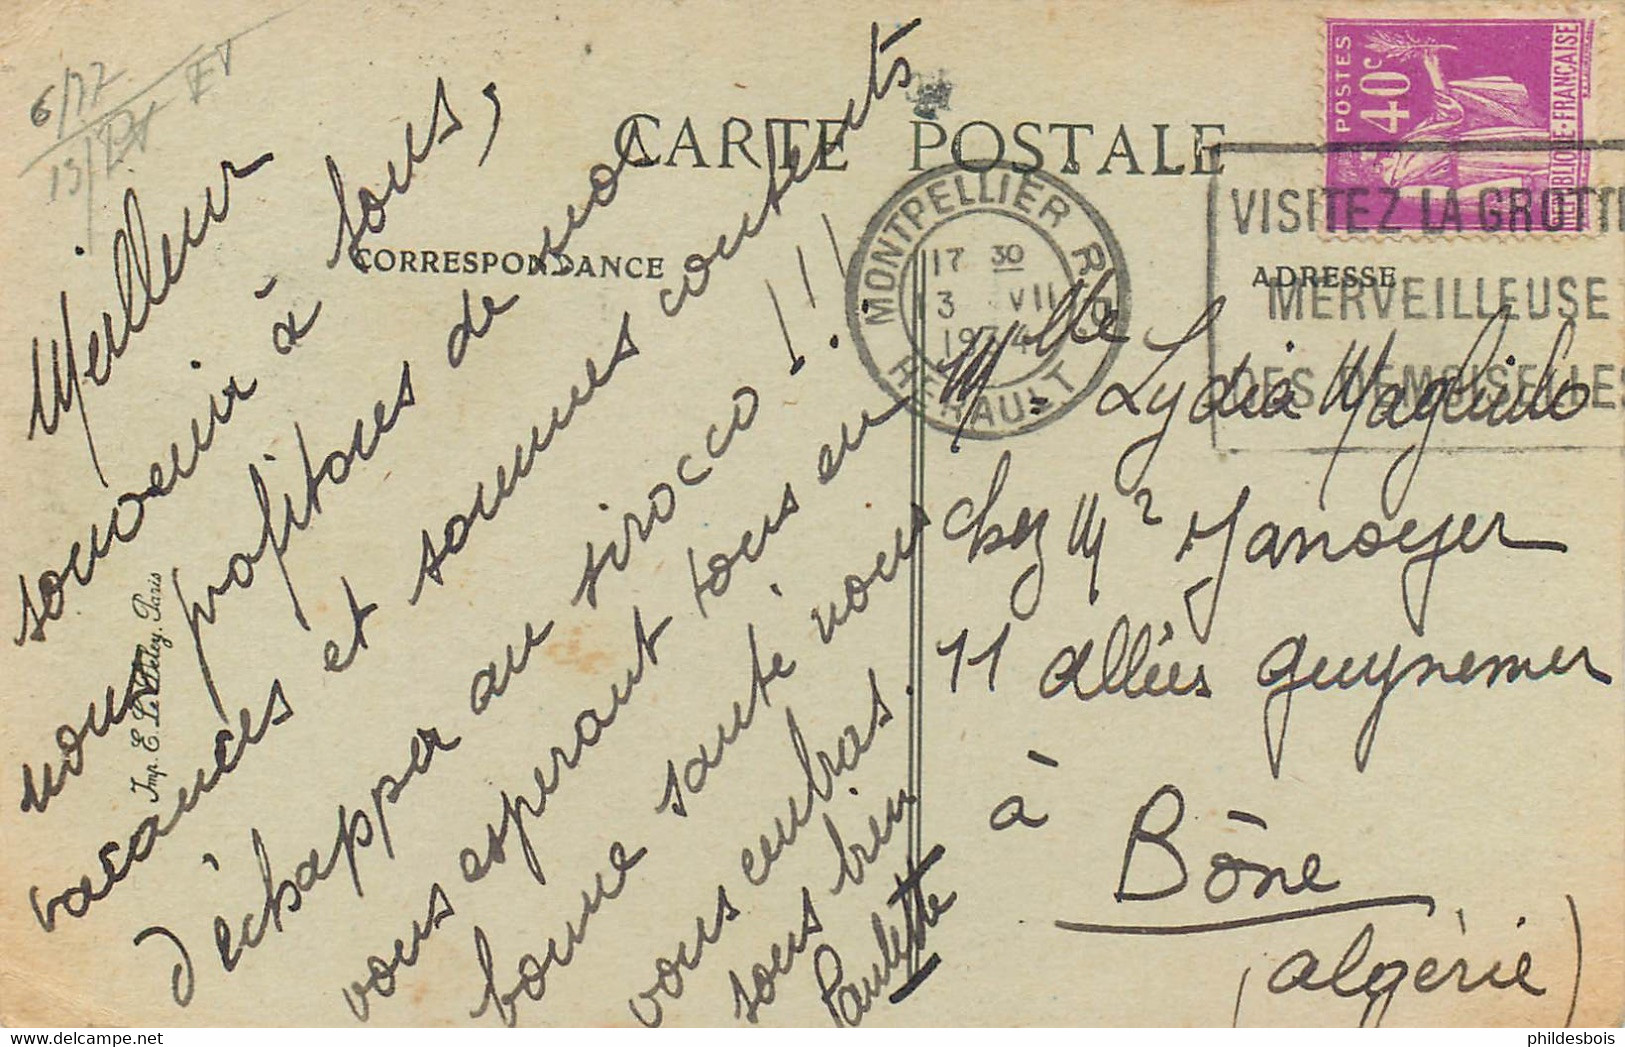 6/77
CARTE POSTALE
CORRESPONDANCE
ADRESSE
POSTES
40c
REPUBLIQUE-FRANÇAISE
MONTPELLIER R.P.
17 30
13 VII
1934
HERAULT
VISITEZ LA GROTTE
MERVEILLEUSE
DES DEMOISELLES
Meilleur
souvenir à tous,
nous profitons de nos
vacances et sommes contents
d'échapper au sirocco !!!
vous espérant tous en
bonne santé nous
vous embras.
sons bien
Paulette
Mlle Lydia Magliulo
chez Mr Manoyer
11 allées guynemer
à
Bône
(algérie)
Imp. E. Le Deley, Paris
phildesbois